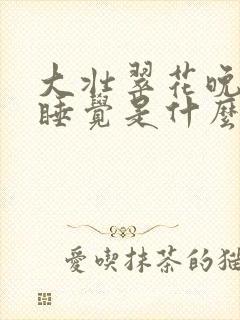 大壯翠花晚
睡覺是什麼
愛喫抹茶的貓